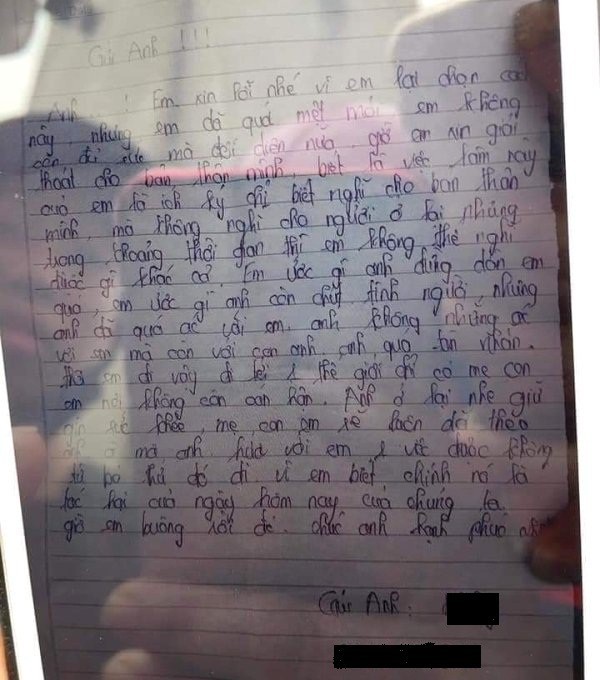 Gửi Anh !!!
Anh ! Em xin lỗi nhé vì em lại chọn cách
này, nhưng em đã quá mệt mỏi em không
can đảm mà đối diện nữa, giờ em xin giải
thoát cho bản thân mình, biết là việc làm này
của em là ích kỷ chỉ biết nghĩ cho bản thân
mình, mà không nghĩ cho người ở lại nhưng
trong khoảng thời gian thì em không thể nghĩ
được gì khác cả. Em ước gì anh đừng dồn em
quá, em ước gì anh còn chút tình người nhưng
anh đã quá ác với em, anh không những ác
với em mà còn với con anh, anh quá tàn nhẫn.
Thà em đi vậy đi tới 1 thế giới chỉ có mẹ con
em nơi không còn oán hận. Anh ở lại nhé giữ
gìn sức khỏe, mẹ con em sẽ luôn dõi theo
anh mà anh hứa với em 1 việc được không
từ bỏ thứ đó đi vì em biết chính nó là
tác hại của ngày hôm nay của chúng ta
giờ em buông rồi đó. chúc anh hạnh phúc
Gửi Anh: